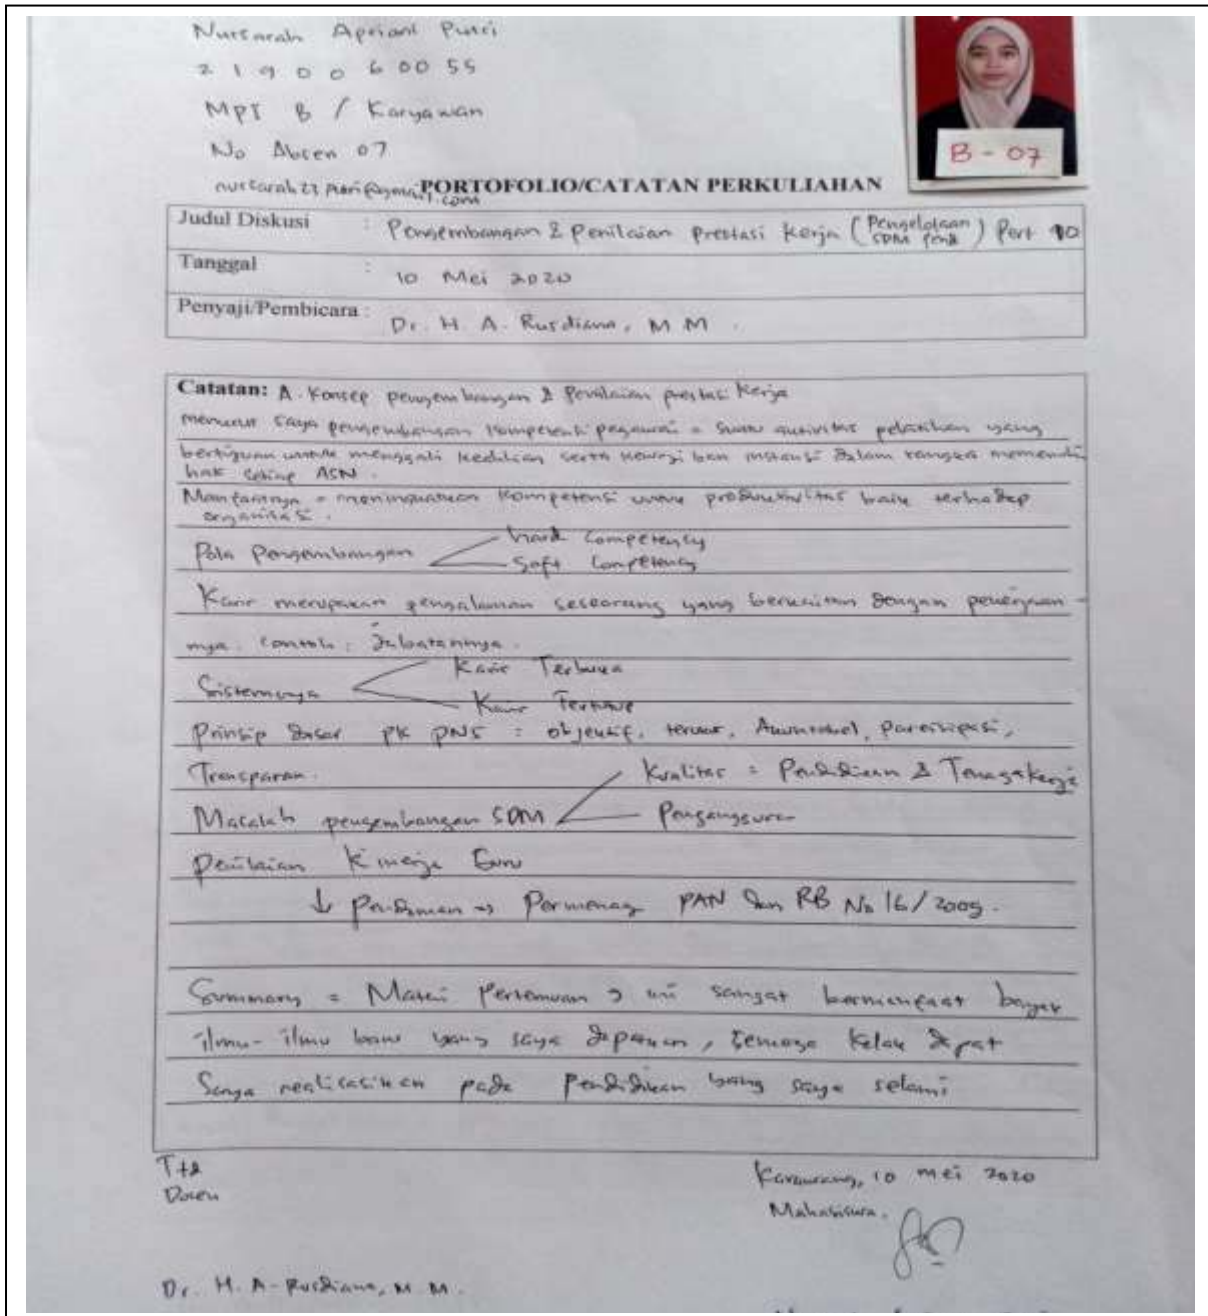 Nursarah Apriani Putri
2 1 9 0 0 6 0 0 5 5
MPI B / Karyawan
No Absen 07
B - 07
PORTOFOLIO/CATATAN PERKULIAHAN
Judul Diskusi : Pengembangan & Penilaian Prestasi Kerja (Pengelolaan SDM Pend) Pert 10
Tanggal : 10 Mei 2020
Penyaji/Pembicara : Dr. H. A. Rusdiana, M M .
Catatan: A. Konsep pengembangan & Penilaian prestasi Kerja
menurut saya pengembangan kompetensi pegawai = suatu aktivitas pelatihan yang
bertujuan untuk menggali keahlian serta kewajiban instansi dalam rangka memenuhi
hak setiap ASN.
Manfaatnya = meningkatkan kompetensi untuk produktivitas baik terhadap
organisasi.
Pola Pengembangan
hard Competency
Soft Competency
Karir merupakan pengalaman seseorang yang berkaitan dengan pekerjaan
nya. contoh : Jabatannya.
Sistemnya
Karir Terbuka
Karir Tertutup
Prinsip dasar PK PNS = objektif, terukur, Akuntabel, Partisipasi,
Transparan.
Masalah pengembangan SDM
Kualitas = Pendidikan & Tenaga Kerja
Pengangguran
Penilaian Kinerja Guru
↓ Pedoman → Permenag PAN dan RB No 16/2009.
Summary = Materi Pertemuan ini sangat bermanfaat banyak
ilmu-ilmu baru yang saya dapatkan, semoga kelak dapat
Saya realisasikan pada Pendidikan yang saya
Ttd
Dosen
Karawang, 10 mei 2020
Mahasiswa.
Dr. H. A-Rusdiana, M M.